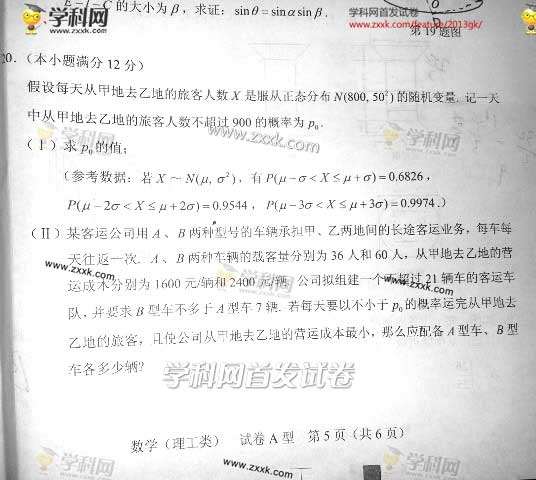 学科网
E－l－C 的大小为 β，求证：sin θ = sin α sin β．
学科网首发试卷
www.zxxk.com/feature/2013gk/
第19题图
20．（本小题满分 12 分）
假设每天从甲地去乙地的旅客人数 X 是服从正态分布 N(800, 50²) 的随机变量. 记一天
中从甲地去乙地的旅客人数不超过 900 的概率为 p₀．
www.zxxk.com
学科网
（Ⅰ）求 p₀ 的值；
（参考数据：若 X ～ N(μ, σ²)，有 P(μ－σ < X ≤ μ＋σ) = 0.6826，
P(μ－2σ < X ≤ μ＋2σ) = 0.9544，P(μ－3σ < X ≤ μ＋3σ) = 0.9974．）
（Ⅱ）某客运公司用 A、B 两种型号的车辆承担甲、乙两地间的长途客运业务，每车每
天往返一次．A、B 两种车辆的载客量分别为 36 人和 60 人，从甲地去乙地的营
运成本分别为 1600 元/辆和 2400 元/辆．公司拟组建一个不超过 21 辆车的客运车
队，并要求 B 型车不多于 A 型车 7 辆. 若每天要以不小于 p₀ 的概率运完从甲地去
乙地的旅客，且使公司从甲地去乙地的营运成本最小，那么应配备 A 型车、B 型
车各多少辆？
学科网首发试卷
数学（理工类） 试卷 A 型 第 5 页（共 6 页）
学科网
www.zxxk.com
学科网